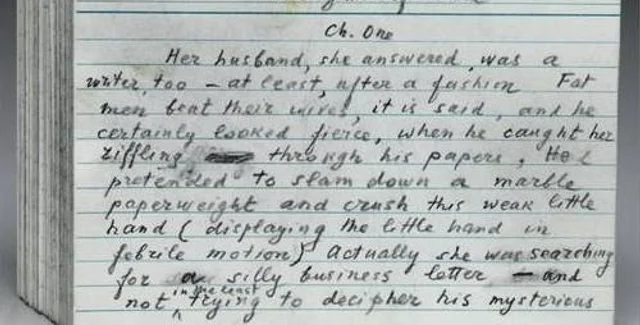 Ch. One
Her husband, she answered, was a
writer, too – at least, after a fashion. Fat
men beat their wives, it is said, and he
certainly looked fierce, when he caught her
riffling through his papers. He
pretended to slam down a marble
paperweight and crush this weak little
hand (displaying the little hand in
febrile motion) Actually she was searching
for a silly business letter – and
not in the least trying to decipher his mysterious